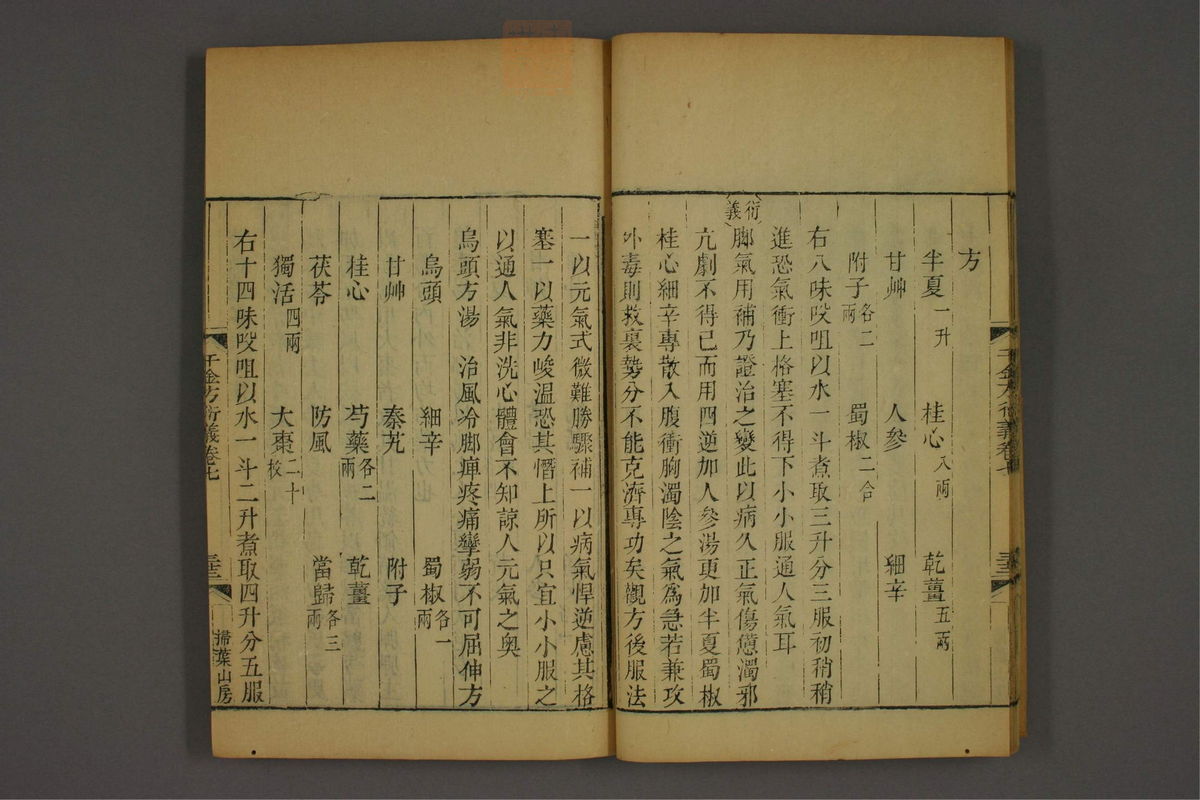 方
半夏一升 桂心八兩 乾薑五兩
甘艸 人參 細辛
附子各二兩 蜀椒二合
右八味㕮咀以水一斗煮取三升分三服初稍稍
進恐氣衝上格塞不得下小小服通人氣耳
衍義
脚氣用補乃證治之變此以病久正氣傷憊濁邪
亢劇不得已而用四逆加人參湯更加半夏蜀椒
桂心細辛專散入腹衝胸濁陰之氣爲急若兼攻
外毒則救裏勢分不能克濟專功矣觀方後服法
一以元氣式微難勝驟補一以病氣悍逆慮其格
塞一以藥力峻溫恐其僭上所以只宜小小服之
以通人氣非洗心體會不知諒人元氣之奧
烏頭方湯 治風冷脚痺疼痛攣弱不可屈伸方
烏頭 細辛 蜀椒各一兩
甘艸 秦艽 附子
桂心 芍藥各二兩 乾薑
茯苓 防風 當歸各三兩
獨活四兩 大棗二十枚
右十四味㕮咀以水一斗二升煮取四升分五服
千金方衍義卷七
三十三
掃葉山房